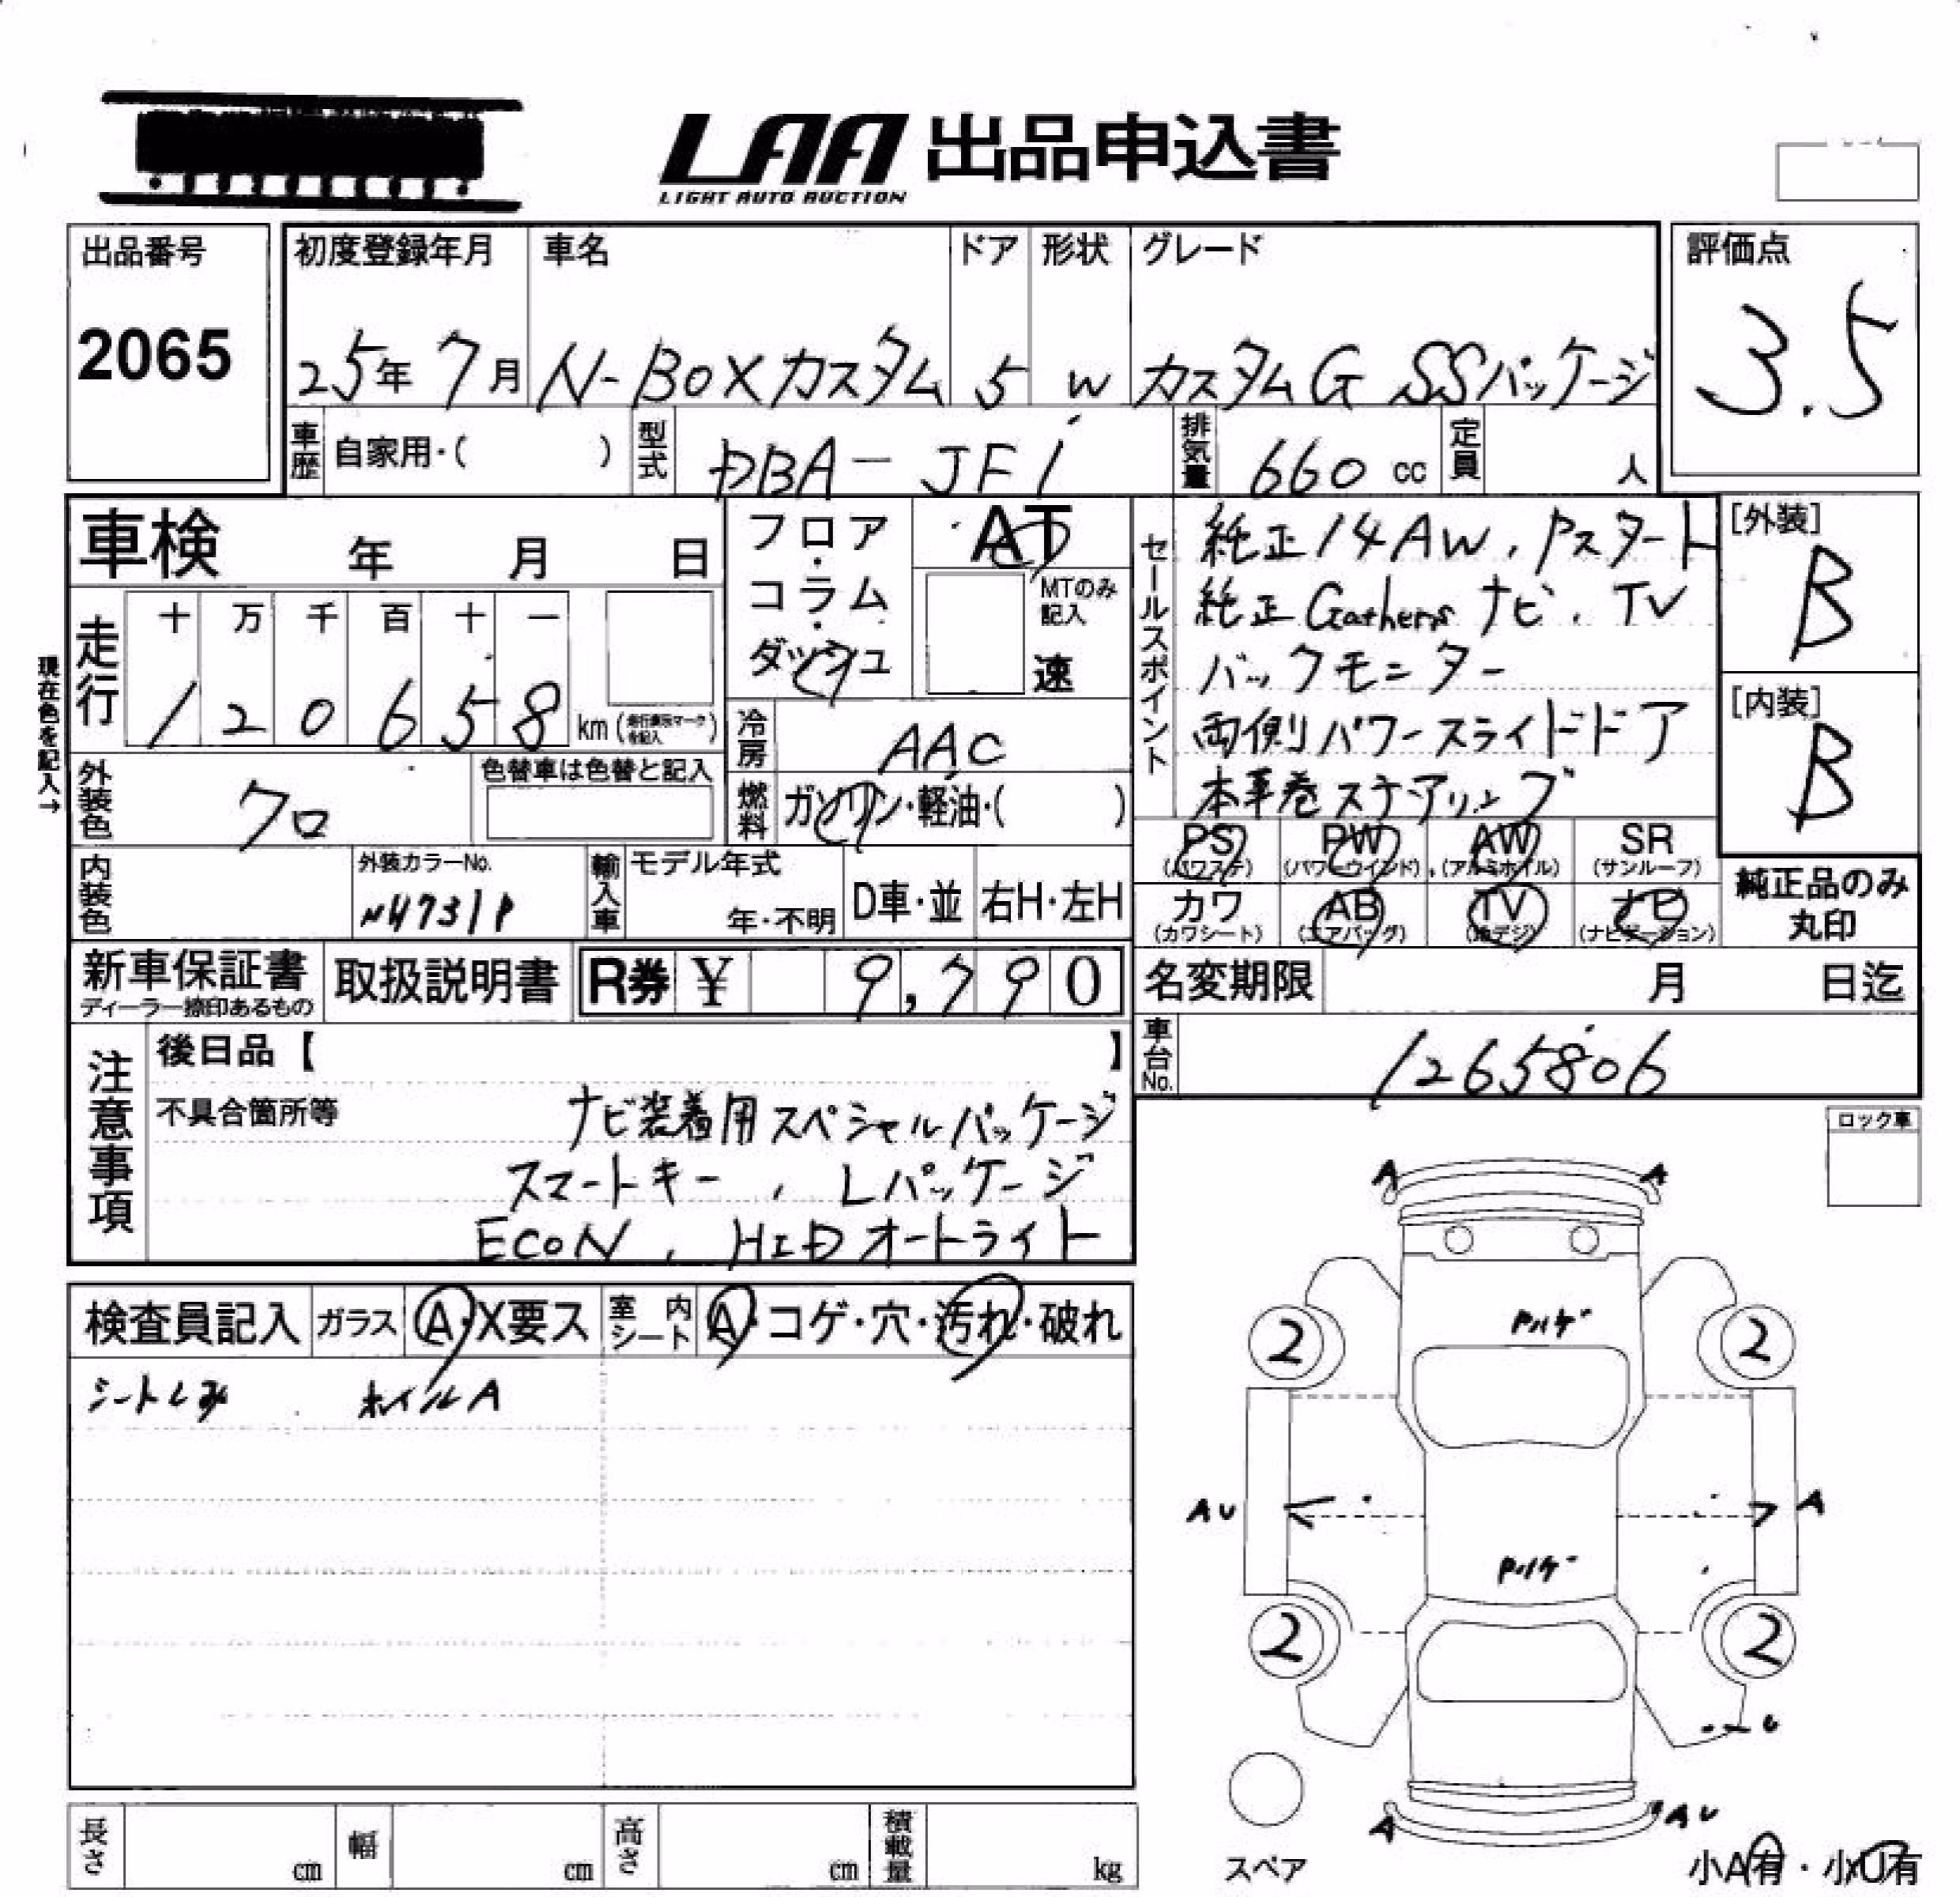 LAA 出品申込書
LIGHT AUTO AUCTION
出品番号
2065
初度登録年月
25年7月
車名
N-BOXカスタム
ドア
5
形状
W
グレード
カスタムG SSパッケージ
評価点
3.5
車歴 自家用・( )
型式 DBA-JF1
排気量 660 cc
定員 人
車検 年 月 日
フロア・コラム・ダッシュ
AT
MTのみ記入
速
セールスポイント
純正14AW. Pスタート
純正Gathersナビ. TV
バックモニター
両側パワースライドドア
本革巻ステアリング
[外装]
B
[内装]
B
現在色を記入→
走行
十 万 千 百 十 一
1 2 0 6 5 8 km
冷房 AAC
外装色 クロ
色替車は色替と記入
燃料 ガソリン・軽油・( )
PS (パワステ)
PW (パワーウインド)
AW (アルミホイル)
SR (サンルーフ)
カワ (カワシート)
AB (エアバッグ)
TV (地デジ)
ナビ (ナビゲーション)
純正品のみ
丸印
内装色
外装カラーNo.
NH731P
輸入車 モデル年式
年・不明
D車・並
右H・左H
新車保証書
ディーラー捺印あるもの
取扱説明書
R券 ¥ 9,790
名変期限 月 日迄
車台No. 1265806
注意事項
後日品【 】
不具合箇所等
ナビ装着用スペシャルパッケージ
スマートキー , Lパッケージ
ECON , HIDオートライト
ロック車
検査員記入 ガラス A・X要ス 室内シート A・コゲ・穴・汚れ・破れ
シートしみ ホイルA
A A
Pハゲ
2 2
AU A
Pハゲ
2 2
U
A AU
スペア
小A有・小U有
長さ cm 幅 cm 高さ cm 積載量 kg